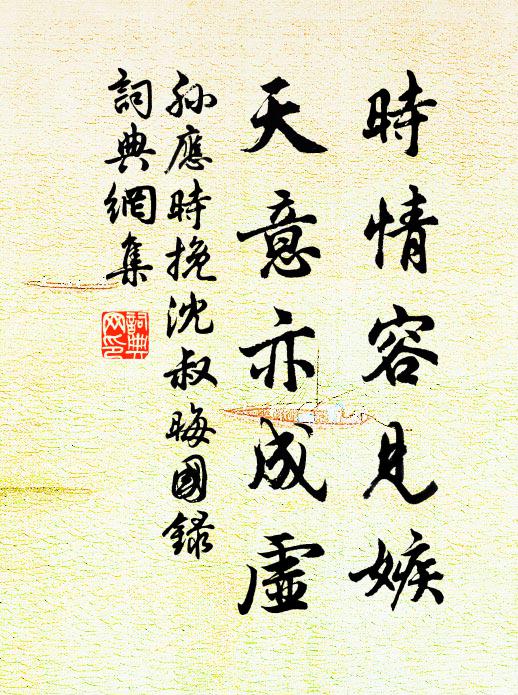 時情容見嫉
天意亦成虛
孫應時挽沈叔晦國錄
詞典網集
詞典
網印